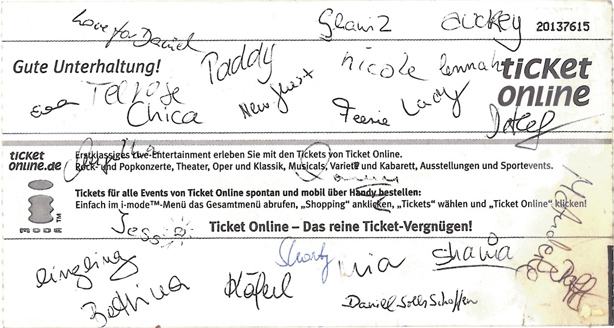 Love for Daniel
Glami2
auckey
20137615
Gute Unterhaltung!
Paddy
nicole
Lennah
ticket
online
Teerose
Eva
Chica
New ghost
Feerie
Lady
Detlef
ticket
online.de
Erstklassiges Live-Entertainment erleben Sie mit den Tickets von Ticket Online.
Rock- und Popkonzerte, Theater, Oper und Klassik, Musicals, Varieté und Kabarett, Ausstellungen und Sportevents.
Tickets für alle Events von Ticket Online spontan und mobil über Handy bestellen:
Einfach im i-mode™-Menü das Gesamtmenü abrufen, „Shopping" anklicken, „Tickets" wählen und „Ticket Online" klicken!
Jessi
Ticket Online – Das reine Ticket-Vergnügen!
Shorty
mia
Shania
Bettina
Daniel solls Schaffen